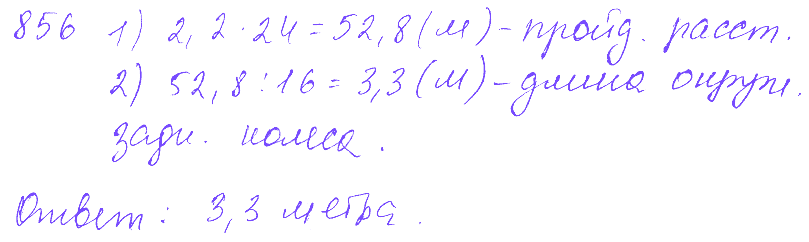 856 1) 2,2·24=52,8(м)-пройд. расст.
2) 52,8:16=3,3(м)-длина окруж.
задн. колеса.
Ответ: 3,3 метра.